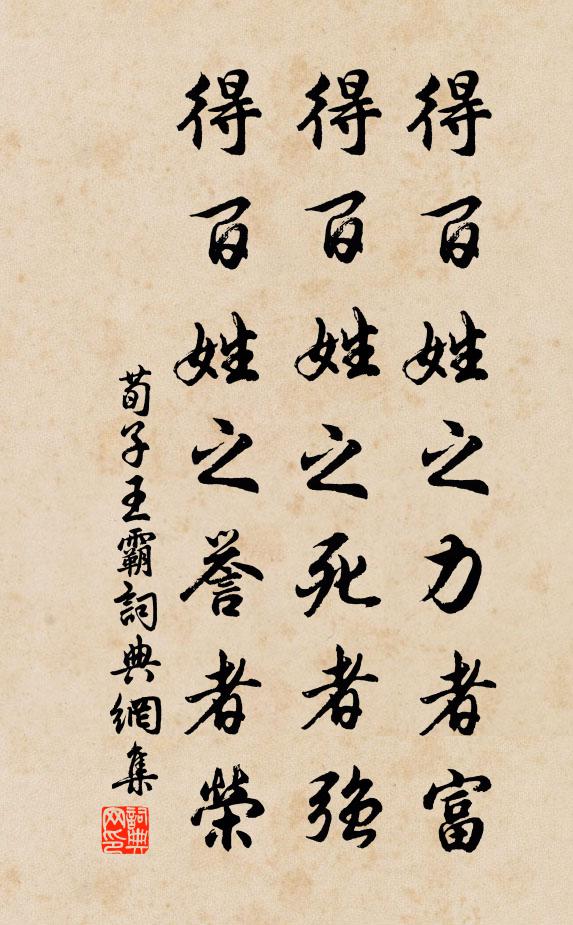 得百姓之力者富
得百姓之死者強
得百姓之誉者榮
荀子王霸詞典網集
詞典网印